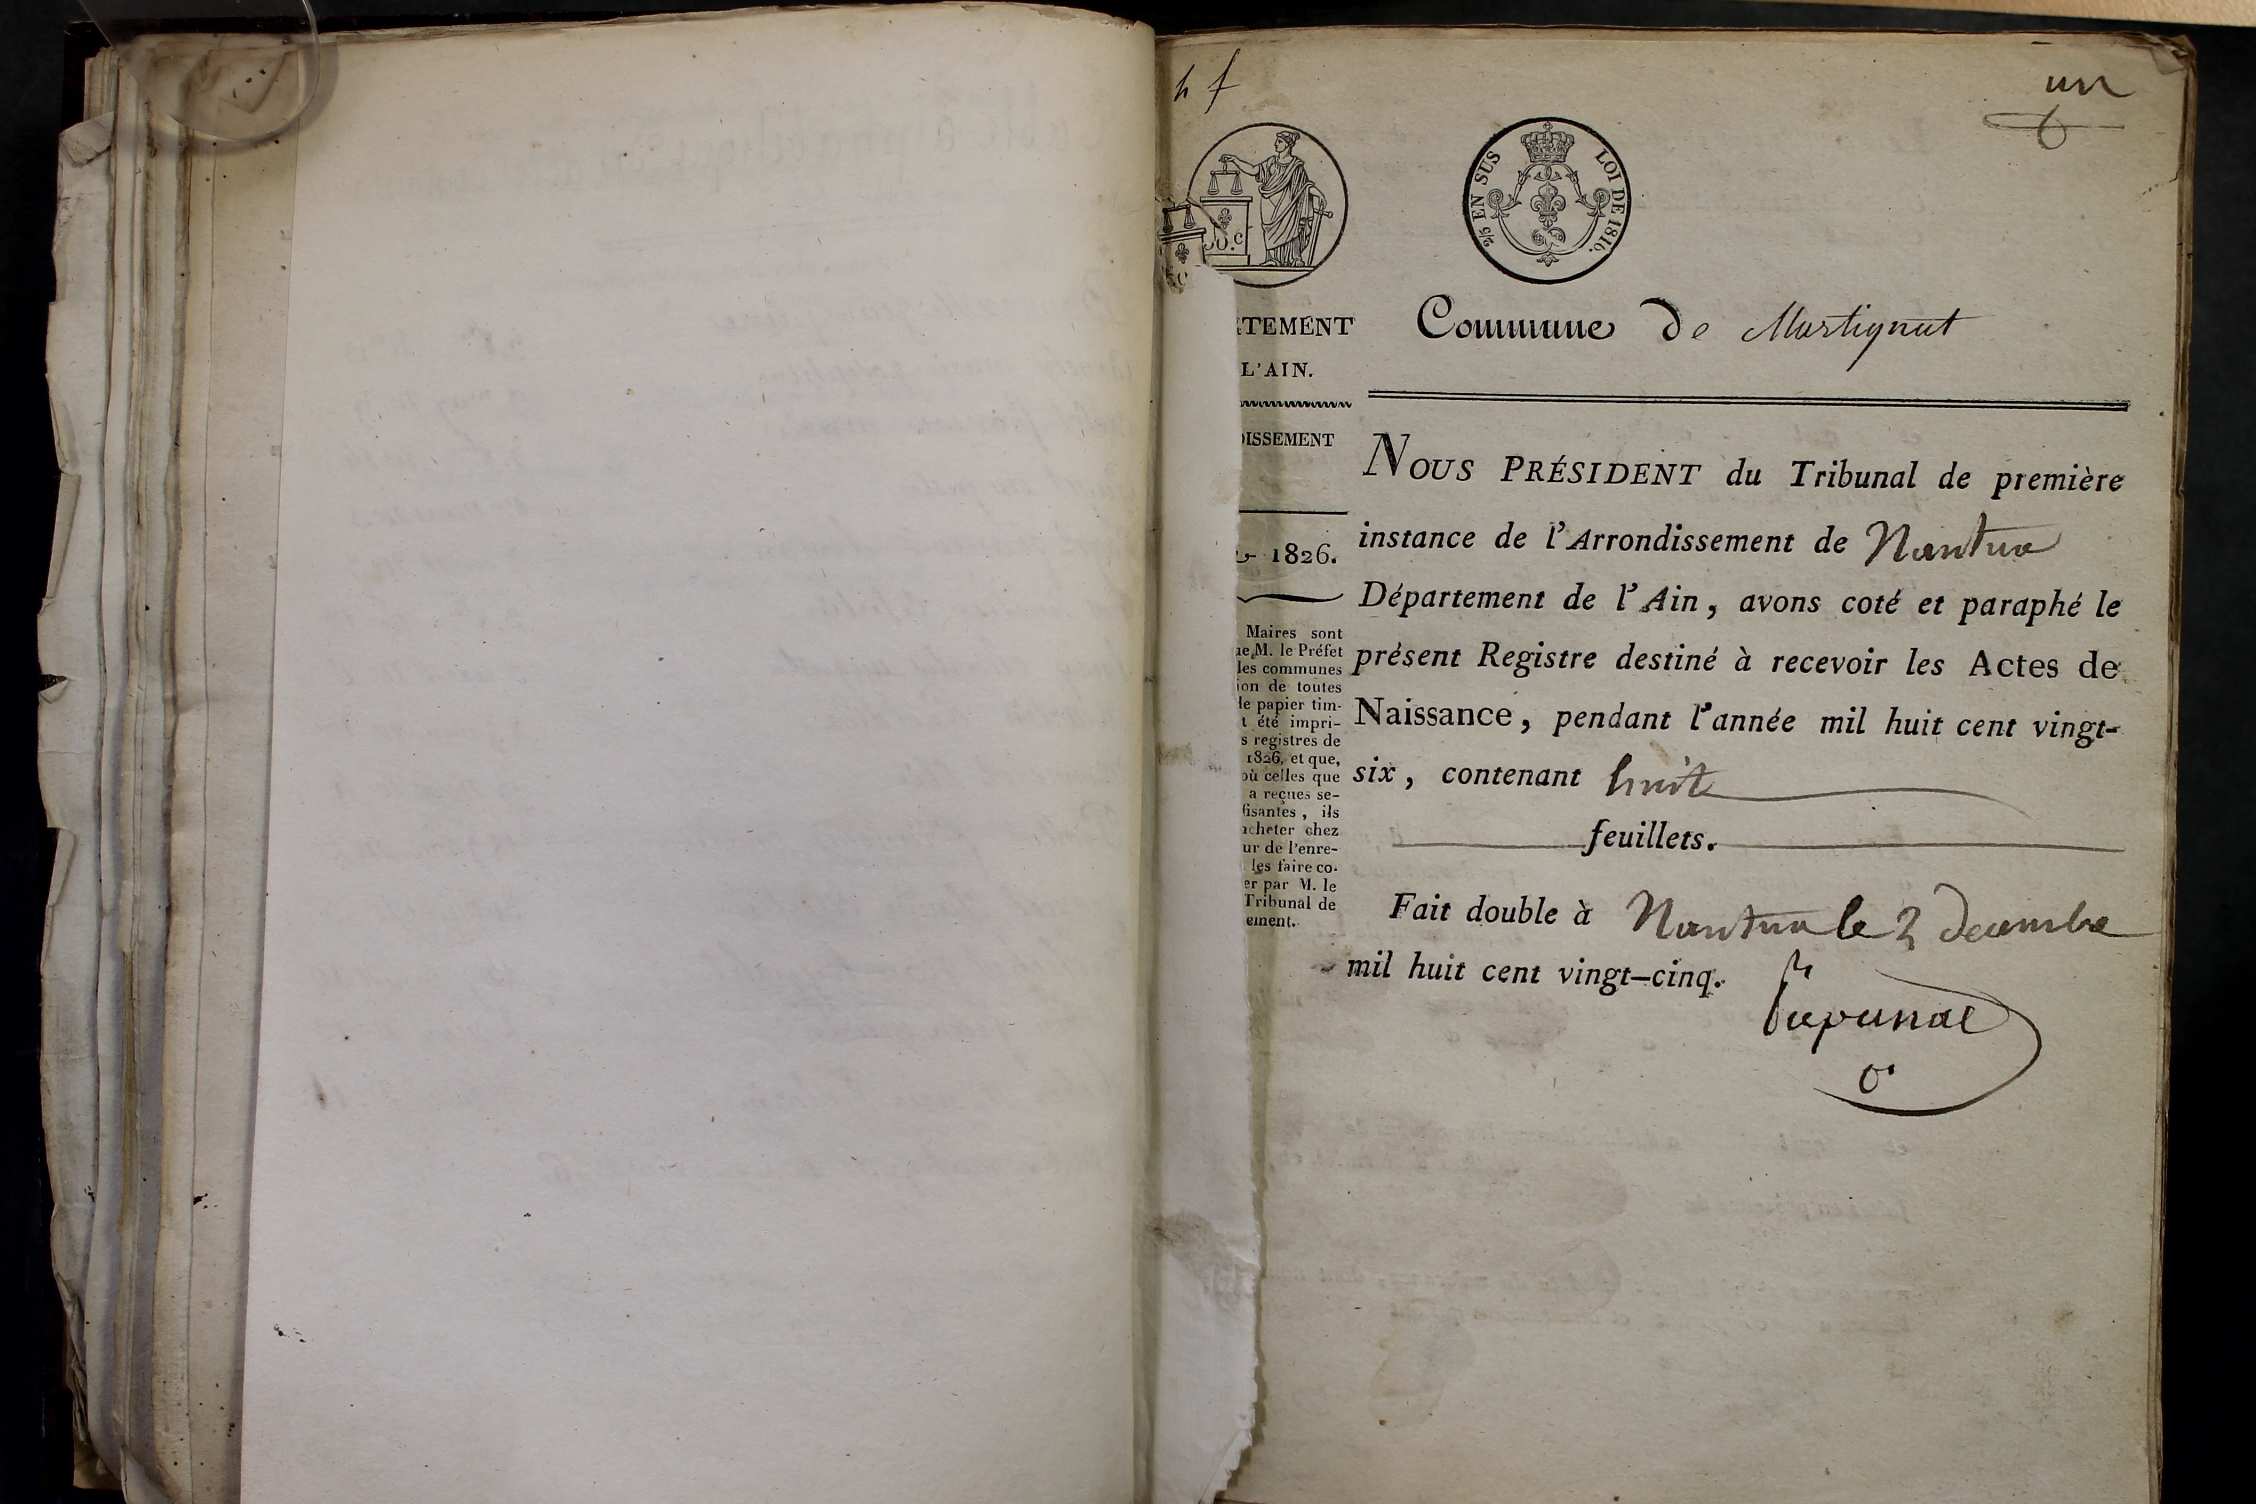 un
2/5 EN SUS LOI DE 1816.
TEMENT
L'AIN.
DISSEMENT
1826.
Maires sont
M. le Préfet
les communes
ion de toutes
le papier tim-
t été impri-
s registres de
1826, et que,
où celles que
a reçues se-
fisantes, ils
acheter chez
ur de l'enre-
les faire co-
er par M. le
Tribunal de
ement.
Commune de Martignat
NOUS PRÉSIDENT du Tribunal de première
instance de l'Arrondissement de Nantua
Département de l'Ain, avons coté et paraphé le
présent Registre destiné à recevoir les Actes de
Naissance, pendant l'année mil huit cent vingt-
six, contenant huit
feuillets.
Fait double à Nantua le 2 decembre
mil huit cent vingt-cinq.